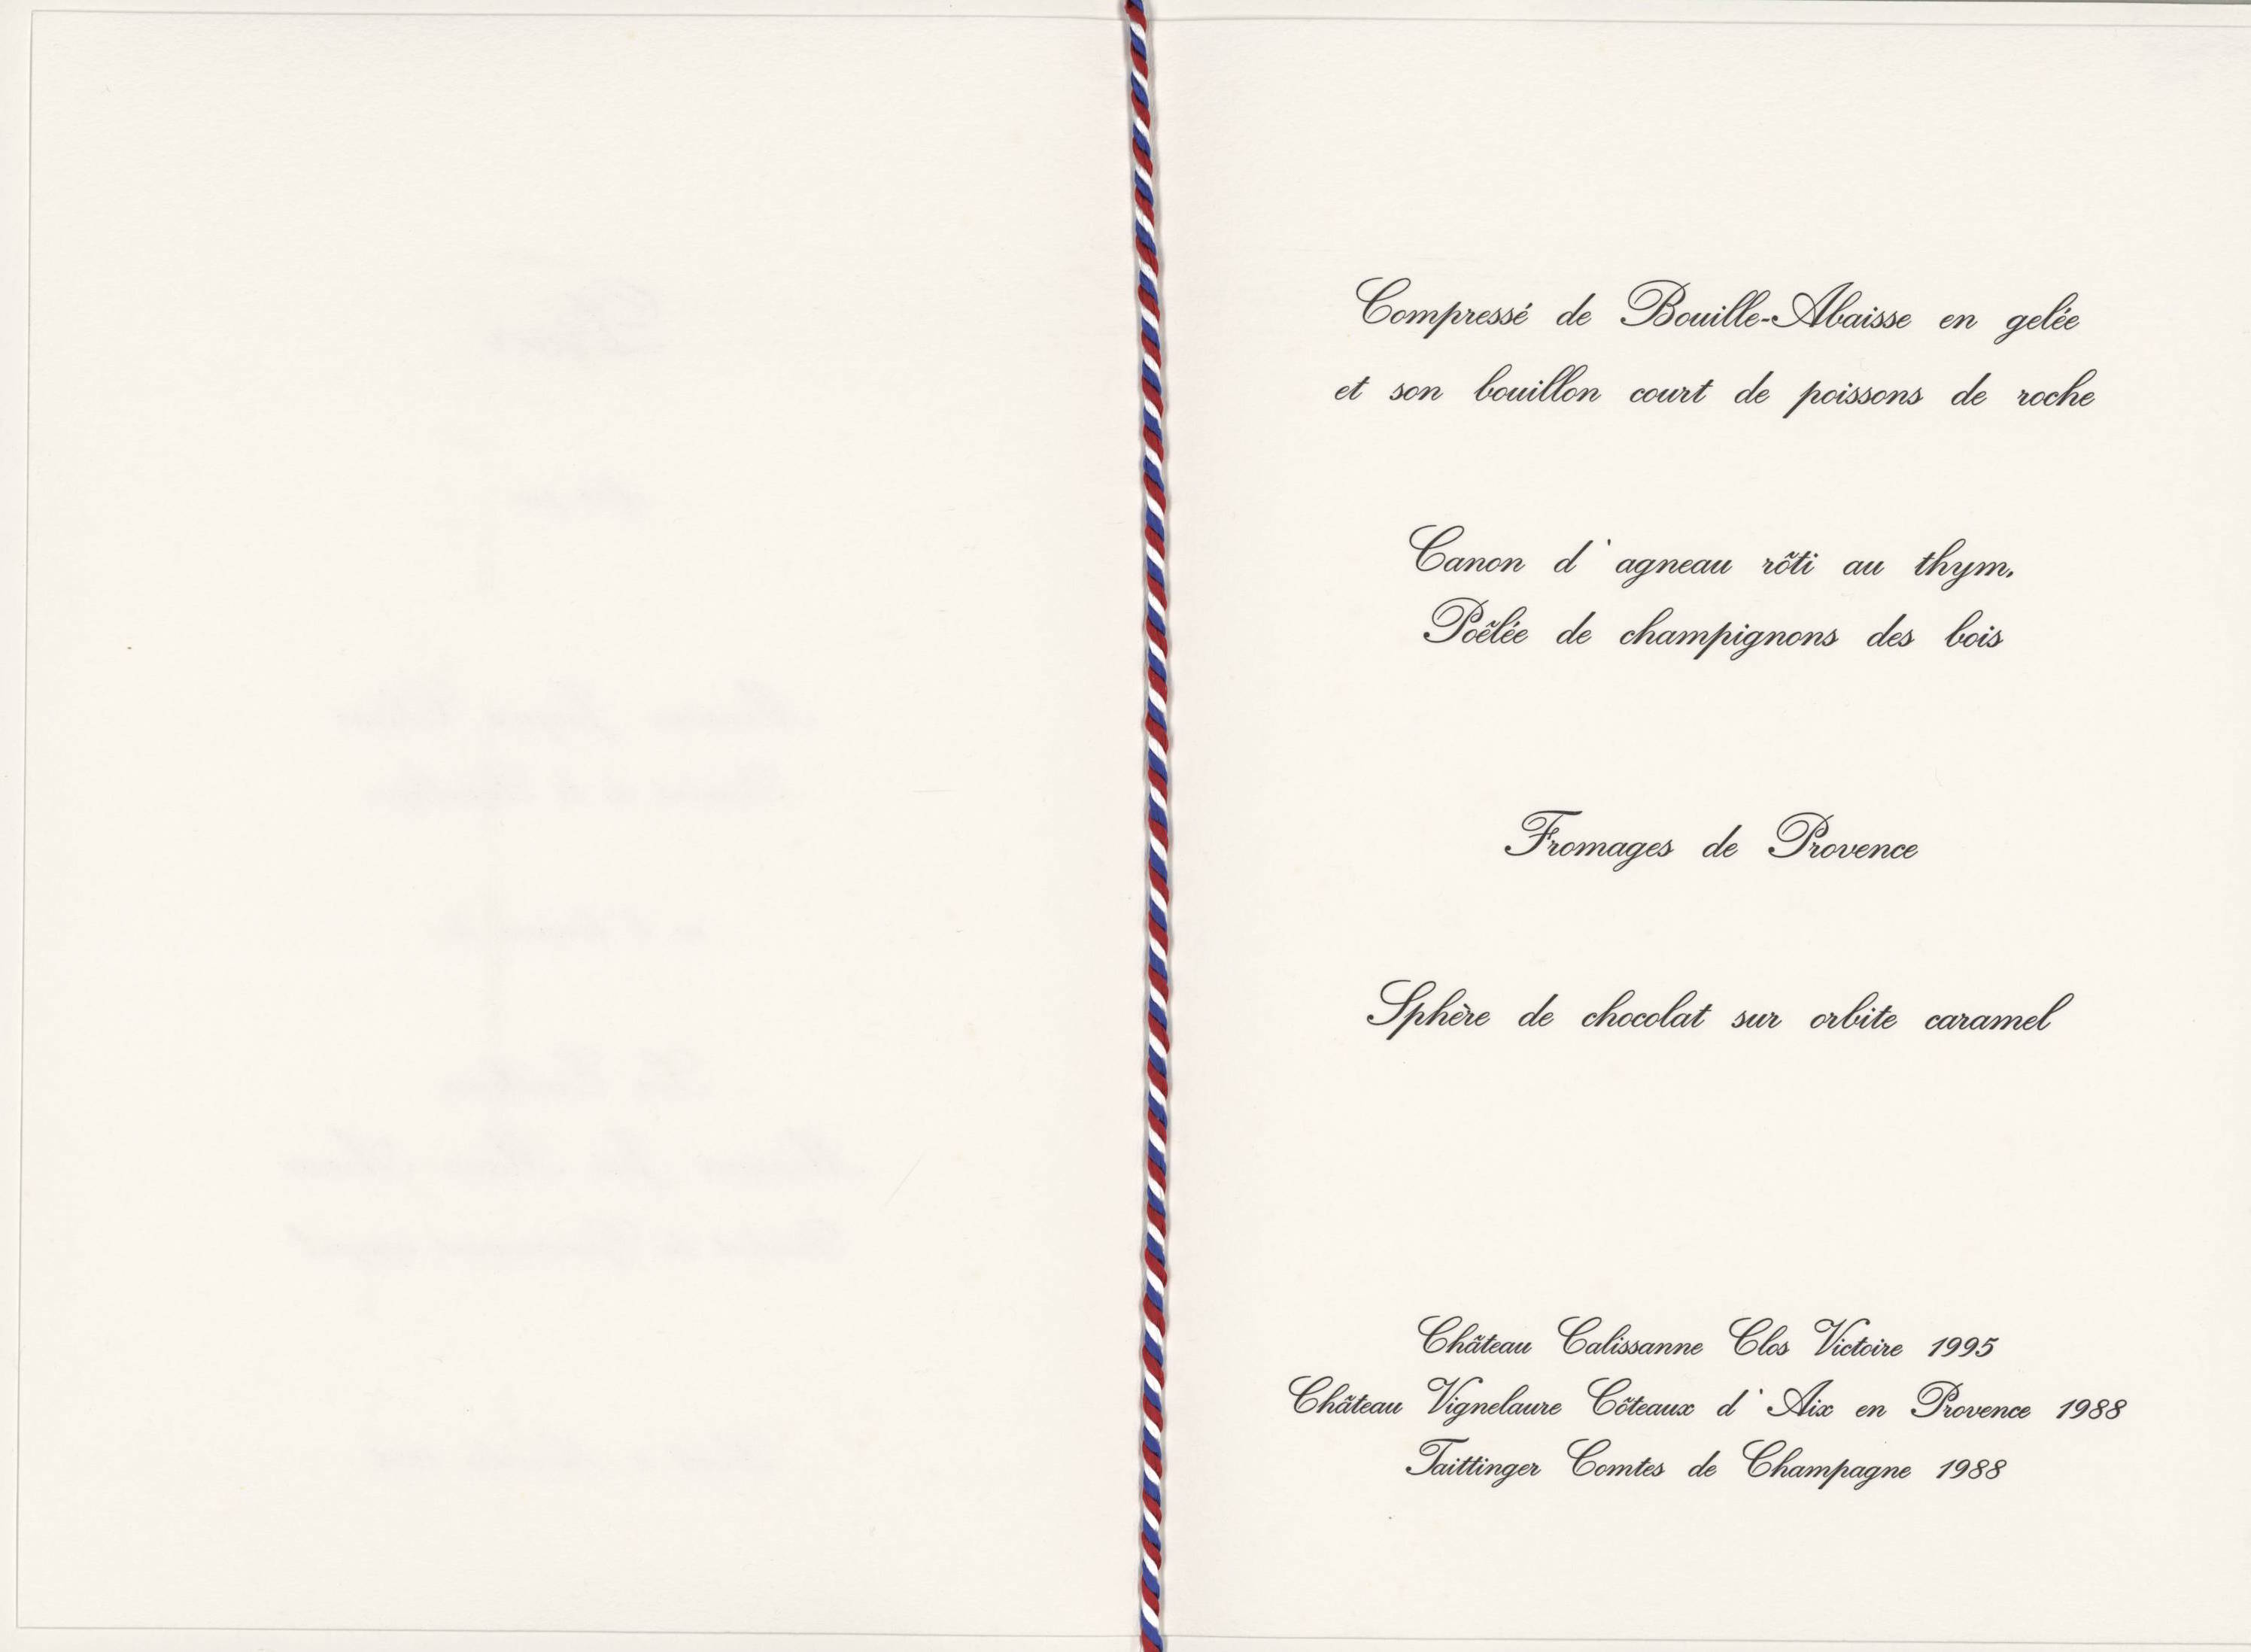 Compressé de Bouille-Abaisse en gelée
et son bouillon court de poissons de roche
Canon d'agneau rôti au thym.
Poêlée de champignons des bois
Fromages de Provence
Sphère de chocolat sur orbite caramel
Château Calissanne Clos Victoire 1995
Château Vignelaure Côteaux d'Aix en Provence 1988
Taittinger Comtes de Champagne 1988